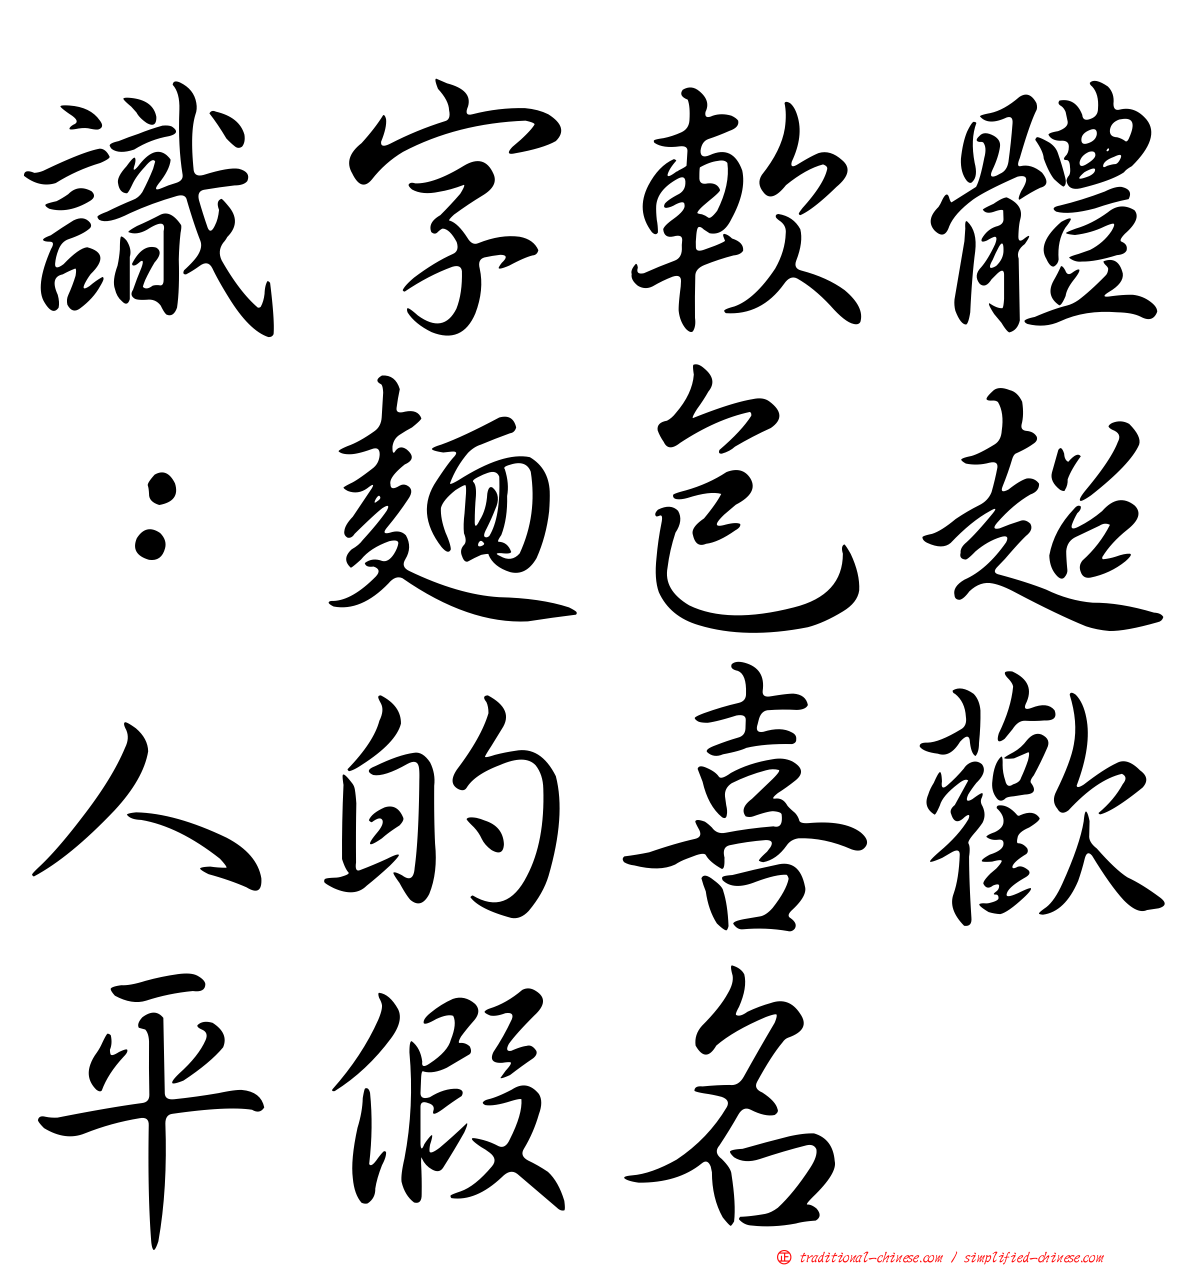 識字軟體
：麵包超
人的喜歡
平假名
正 traditional-chinese.com / simplified-chinese.com